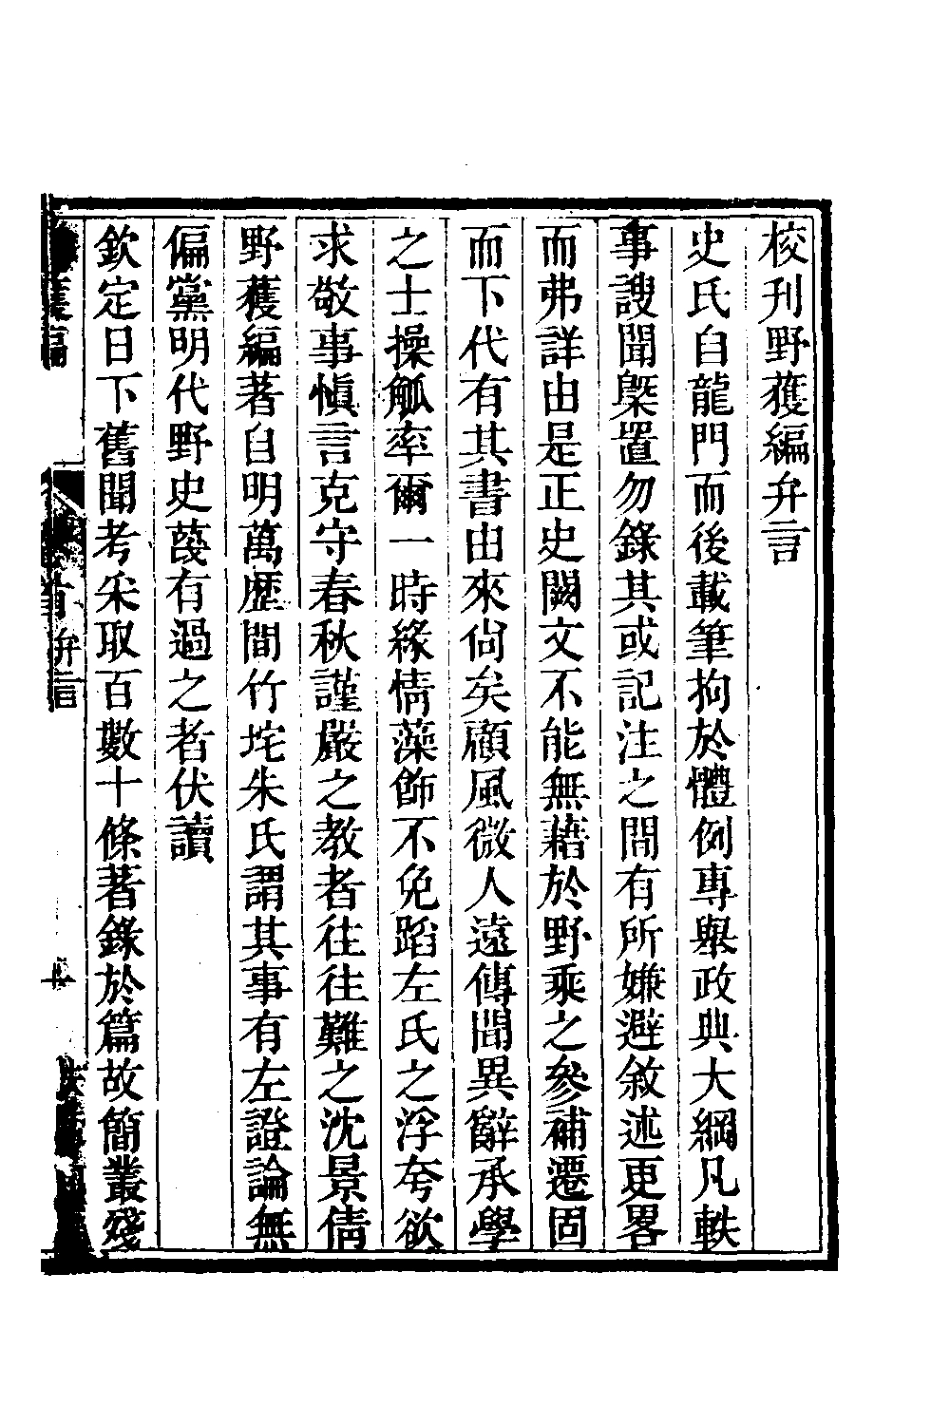 校刊野獲編弁言
史氏自龍門而後載筆拘於體例專舉政典大綱凡軼
事謏聞槩置勿錄其或記注之間有所嫌避敘述更畧
而弗詳由是正史闕文不能無藉於野乘之參補遷固
而下代有其書由來尙矣顧風微人遠傳聞異辭承學
之士操觚率爾一時緣情藻飾不免蹈左氏之浮夸欲
求敬事愼言克守春秋謹嚴之教者往往難之沈景倩
野獲編著自明萬歷間竹垞朱氏謂其事有左證論無
偏黨明代野史蔑有過之者伏讀
欽定日下舊聞考采取百數十條著錄於篇故簡叢殘
弁言